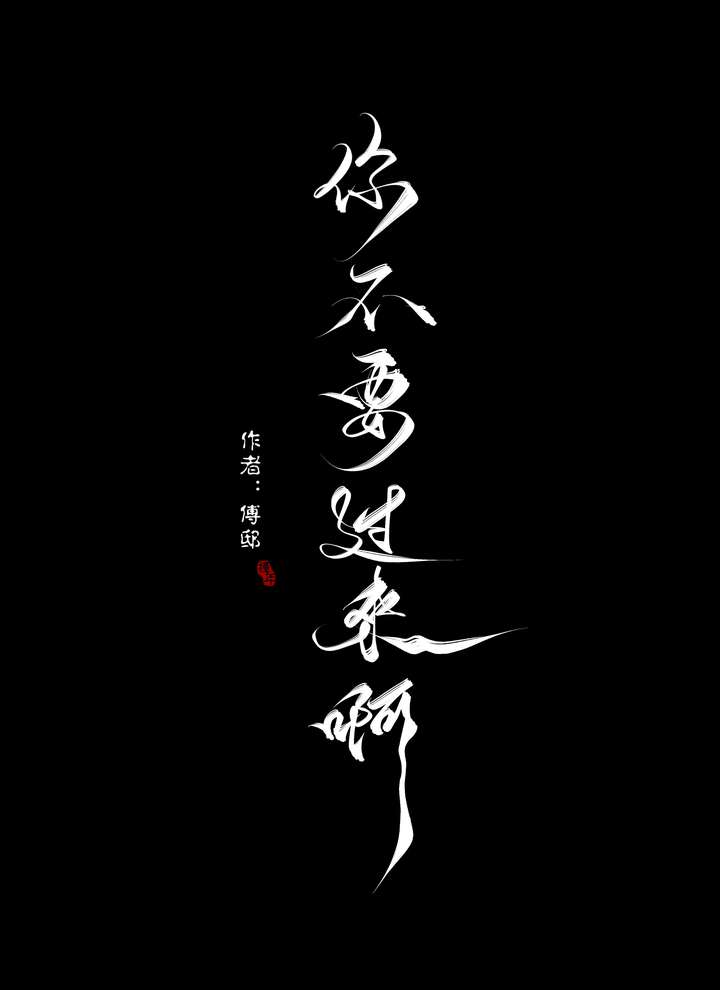 你不要过来啊
作者：傅邸